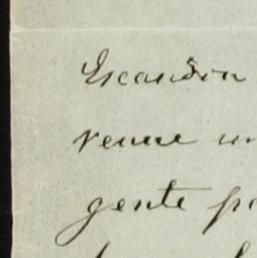 Escandon
reune un
gente p